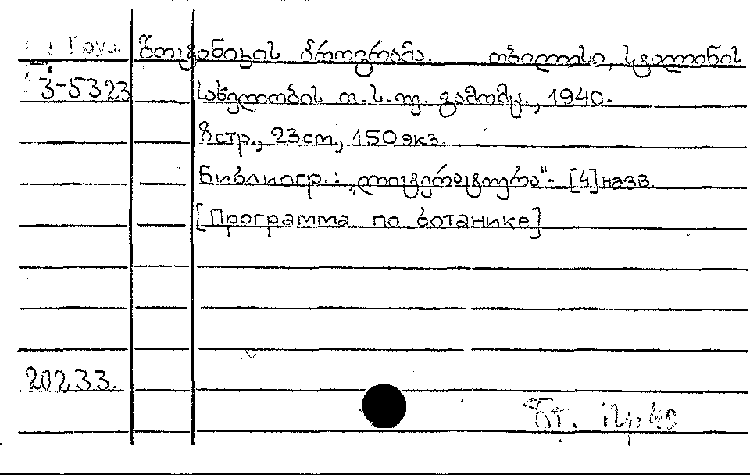 ბოტანიკის პროგრამა. თბილისი, სტალინის
3-5323 სახელობის თ.ს.უ. გამომც., 1940.
8стр., 23cm, 150 экз.
Библиогр.: „ლიტერატურა“- [4] назв.
[Программа по ботанике]
20233.